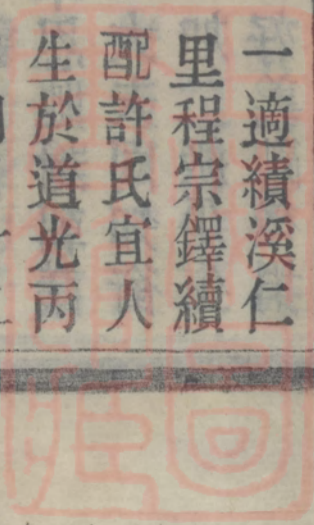 一適績溪仁
里程宗鐸續
配許氏宜人
生於道光丙